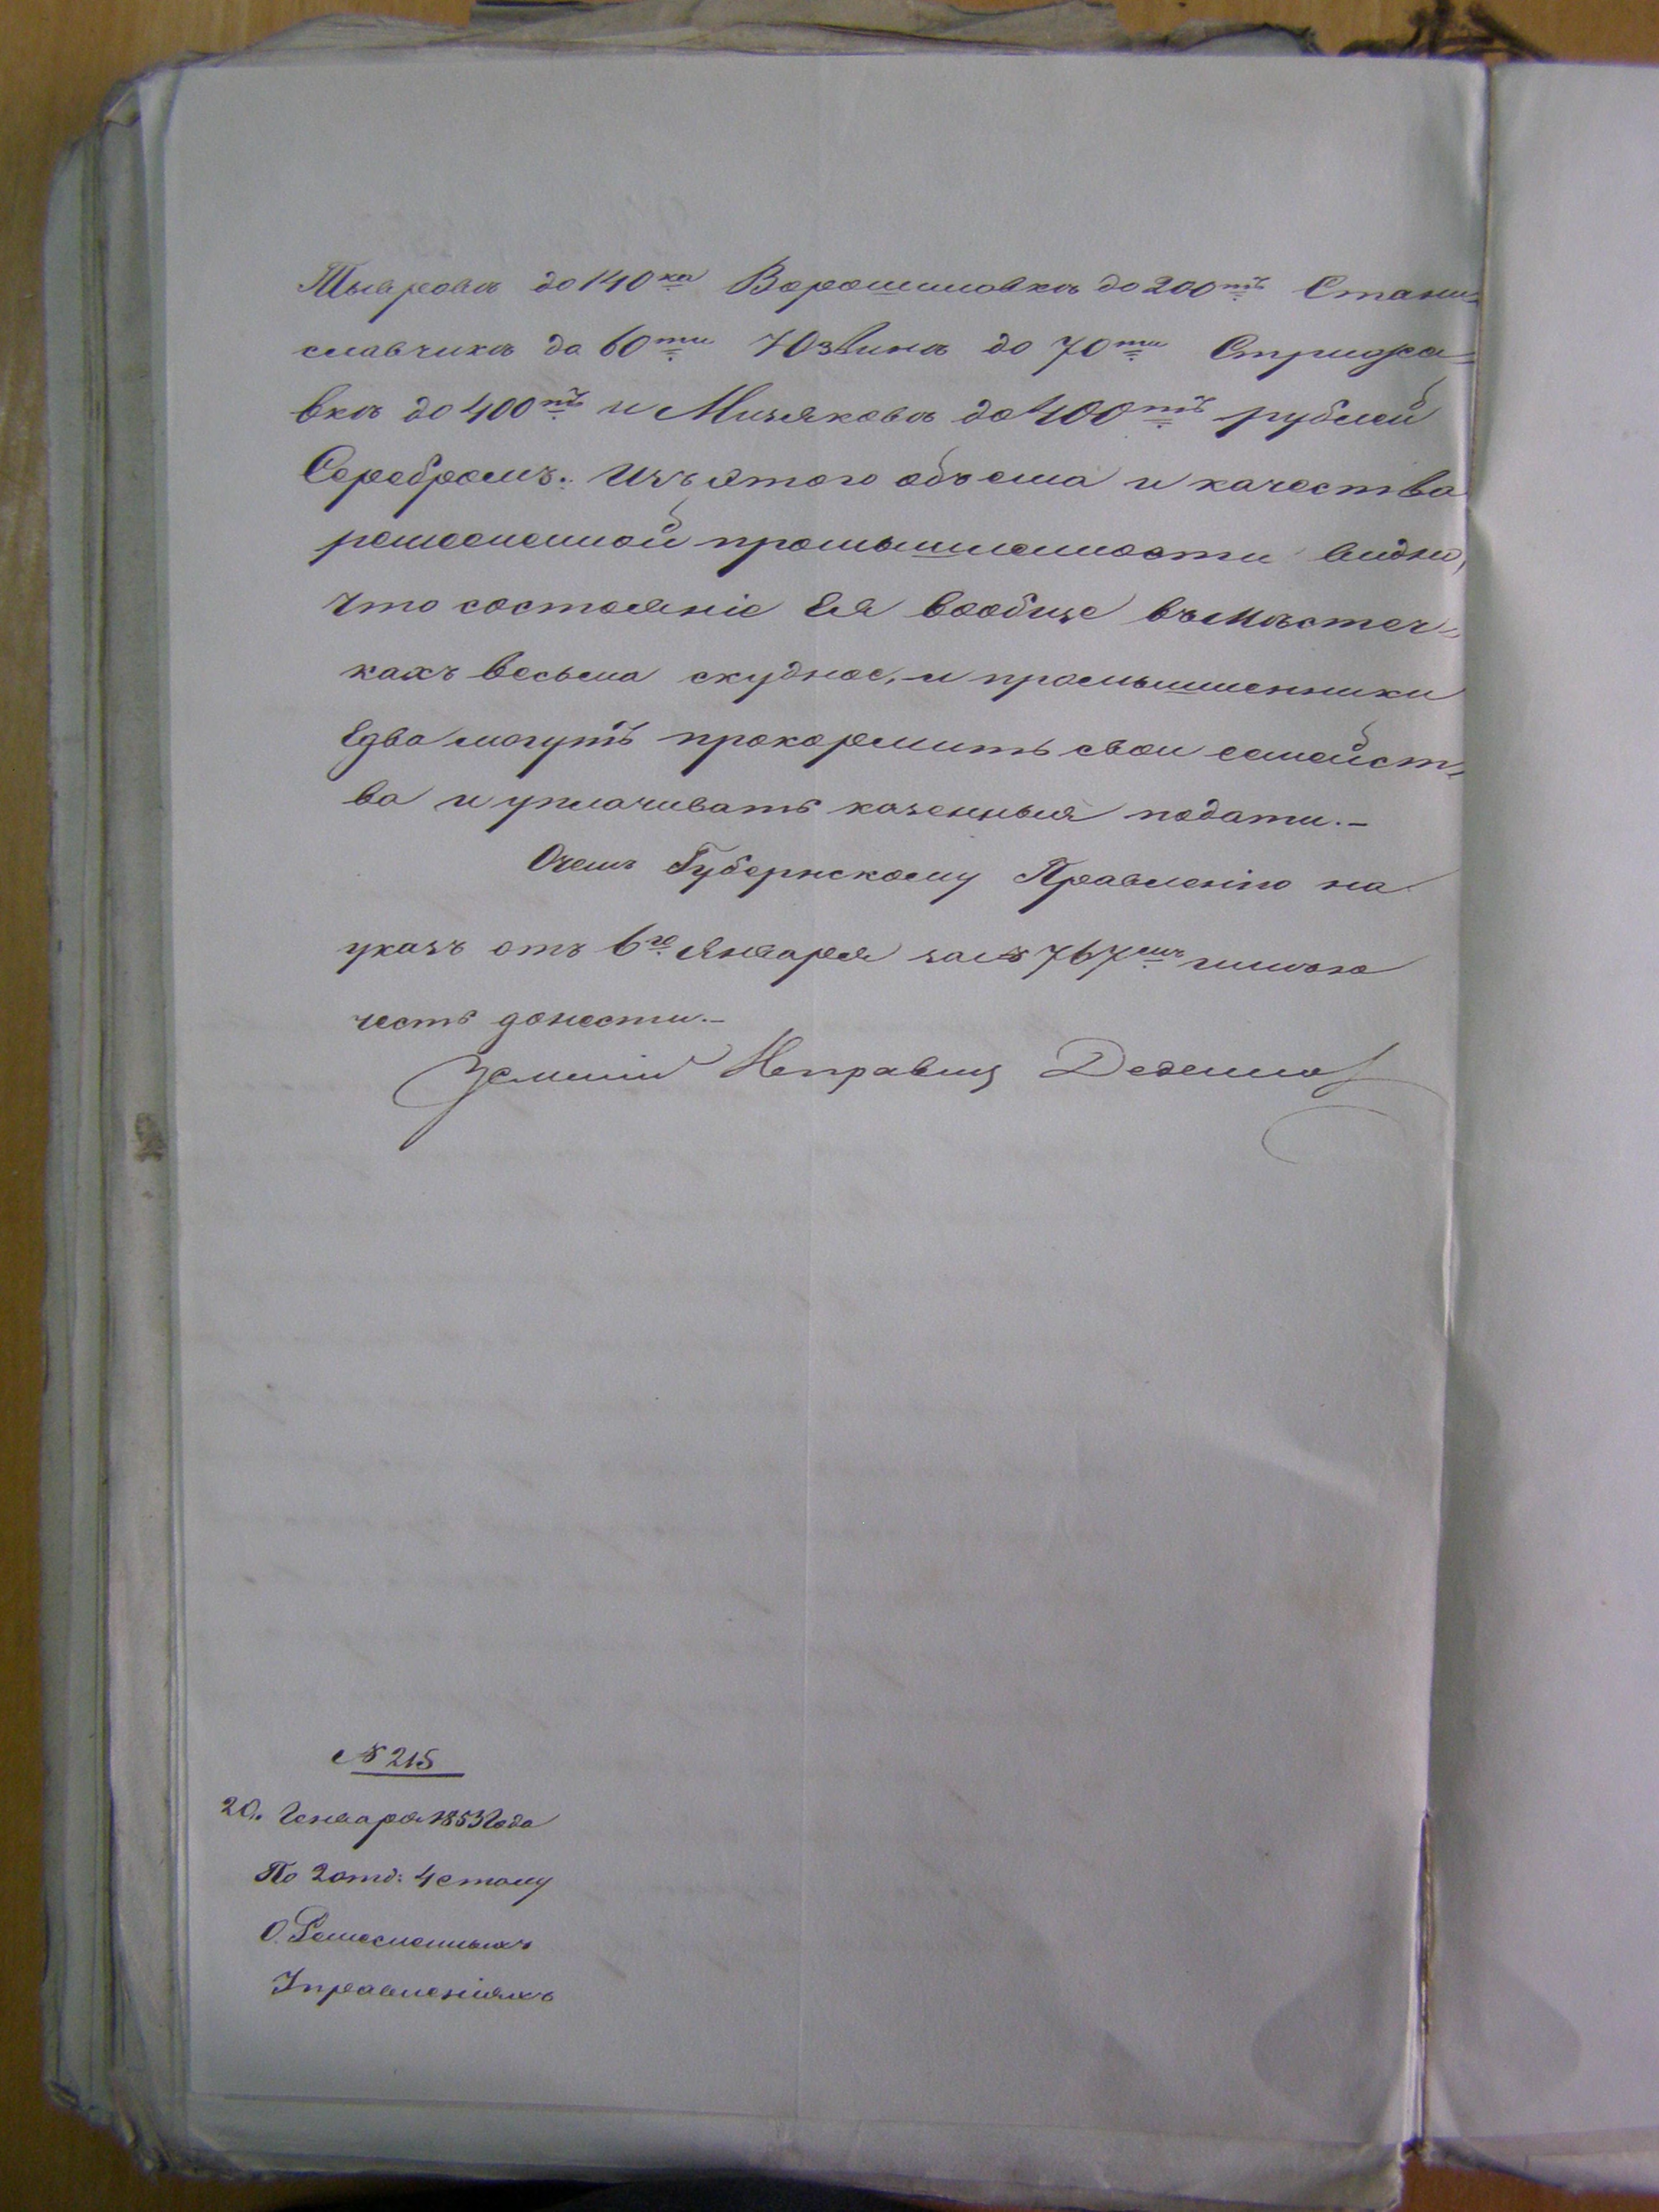 Тывровѣ до 140ка Ворошиловкѣ до 200тъ Стани=
славчикѣ до 60ти Юзвинѣ до 70ти Стрижа=
вкѣ до 400тъ и Мизяковѣ до 400тъ рублей
Серебромъ. Изъ этого объема и качества
ремесленной промышлености видно,
что состояніе Ея вообще въ мѣстеч=
кахъ весьма скудное, и промышленники
Едва могутъ прокормить свои семейст=
ва и уплачивать казенныя подати.—
Очемъ Губернскому Правленію на
указъ отъ 6го Января за № 767мъ имѣю
честь донести.—
Земскій Исправник
№ 215
20. Генваря 1853 Года
По 2 отд: 4 столу
О Ремесленныхъ
Управленіяхъ